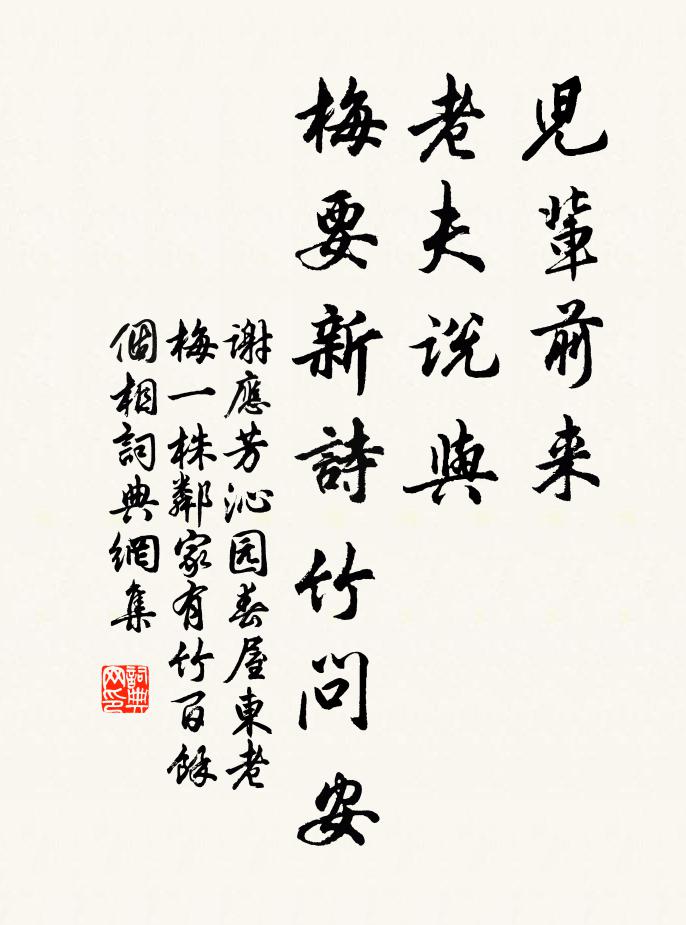 児輩前来
老夫说與
梅要新詩竹问安
谢應芳沁园春屋東老
梅一株鄰家有竹百餘
個相詞典網集
詞典
网印